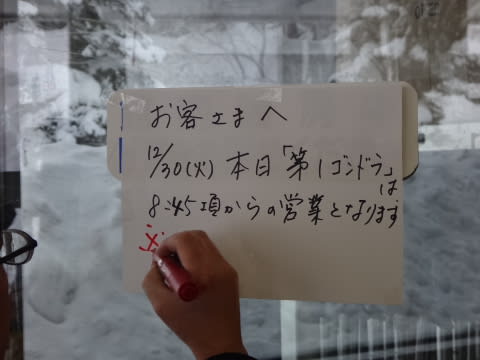 お客さまへ
12/30(火) 本日「第1ゴンドラ」は
8:45頃からの営業となります
※